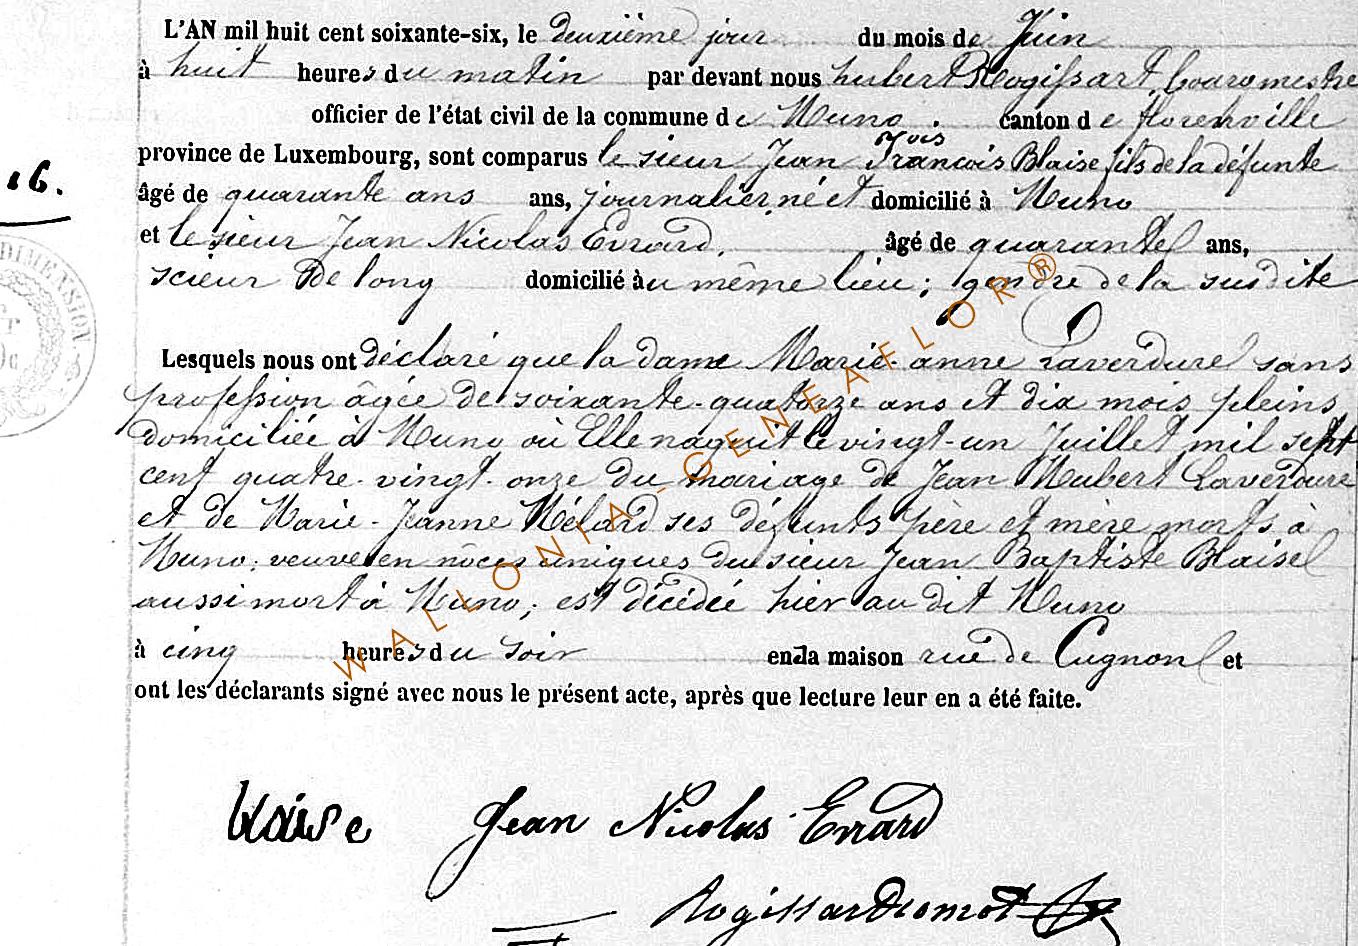 L'AN mil huit cent soixante-six, le deuxième jour du mois de Juin
à huit heures du matin par devant nous hubert Rogissart, bourgmestre
officier de l'état civil de la commune de Muno canton de florenville
province de Luxembourg, sont comparus le sieur Jean François Blaise fils de la défunte
16.
âgé de quarante ans ans, journalier, né et domicilié à Muno
et le sieur Jean Nicolas Evrard, âgé de quarante ans,
scieur de long domicilié au même lieu; gendre de la susdite
Lesquels nous ont déclaré que la dame Marie-anne Laverdure sans
profession âgée de soixante-quatorze ans et dix mois pleins
domiciliée à Muno où Elle naquit le vingt-un Juillet mil sept
cent quatre-vingt-onze du mariage de Jean Hubert Laverdure
et de Marie-Jeanne Mélard ses défunts père et mère morts à
Muno; veuve en nôces uniques du sieur Jean Baptiste Blaise
aussi mort à Muno; est décédée hier au dit Muno
à cinq heures du soir en la maison rue de Cugnon et
ont les déclarants signé avec nous le présent acte, après que lecture leur en a été faite.
WALLONIA-GENEAFLOR®
DIMENSION
blaise Jean Nicolas Evrard